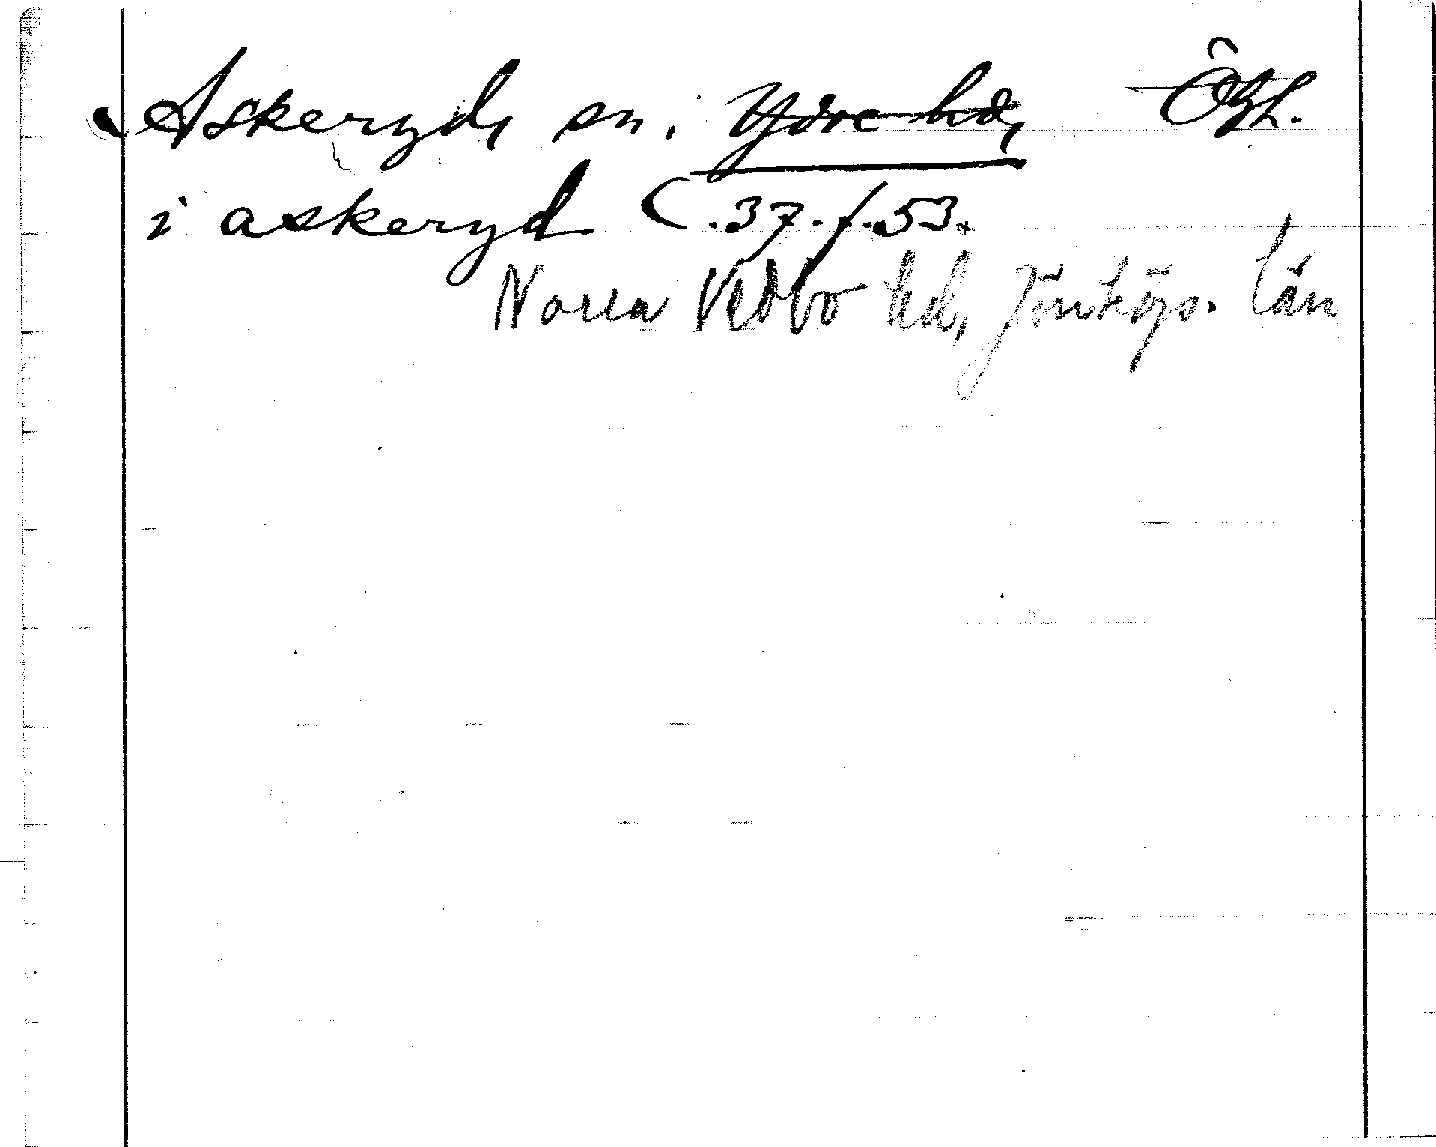 Askeryd, sn. Ydre hd, Ögl.
i askeryd C.37.f.53.
Norra Vedbo hd, Jönköps. län